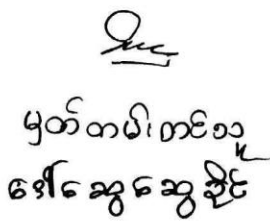 မှတ်တမ်းတင်သူ
ဒေါ်ဆွေဆွေခိုင်